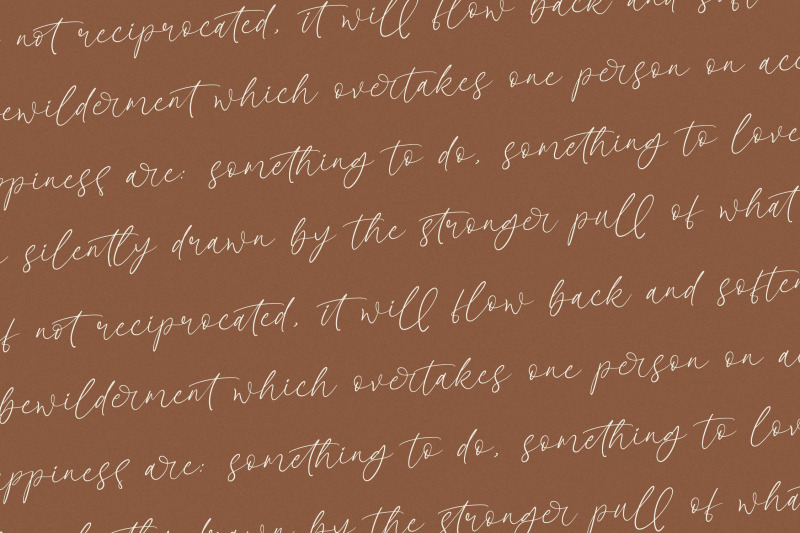 not reciprocated, it will flow back and soft
bewilderment which overtakes one person on acc
ppiness are: something to do, something to love
silently drawn by the stronger pull of what
if not reciprocated, it will flow back and soften
bewilderment which overtakes one person on ac
appiness are: something to do, something to lov
drawn by the stronger pull of what